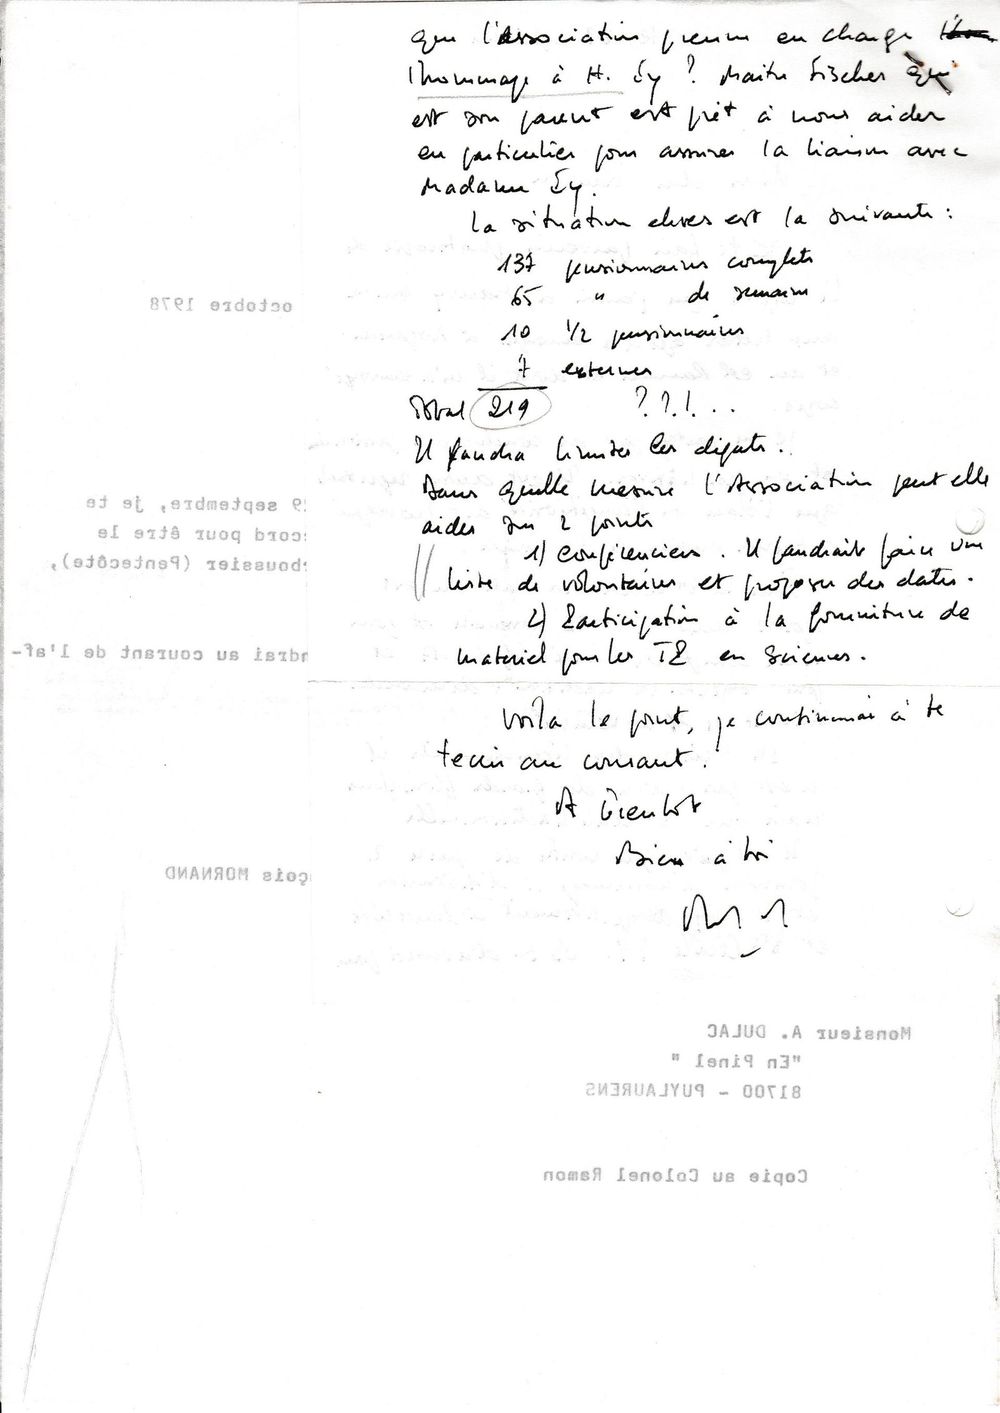 que l'Association prenne en charge
l'hommage à H. Ey ? Maître Fischer qui
est son parent est prêt à nous aider
en particulier pour assurer la liaison avec
Madame Ey.
La situation élèves est la suivante :
137 pensionnaires complets
65 " de semaine
10 1/2 pensionnaires
7 externes
Total 219 ??!...
Il faudra limiter les dégats.
Dans quelle mesure l'Association peut elle
aider sur 2 points
1) Conférenciers. Il faudrait faire une
liste de volontaires et proposer des dates.
2) Participation à la fourniture de
materiel pour les TE en Sciences.
Voilà le point, je continuerai à te
tenir au courant.
A bientôt
Bien à toi
octobre 1978
29 septembre, je te
cord pour être le
rboussier (Pentecôte),
ndrai au courant de l'af-
çois MORNAND
Monsieur A. DULAC
"En Pinel "
81700 - PUYLAURENS
Copie au Colonel Ramon